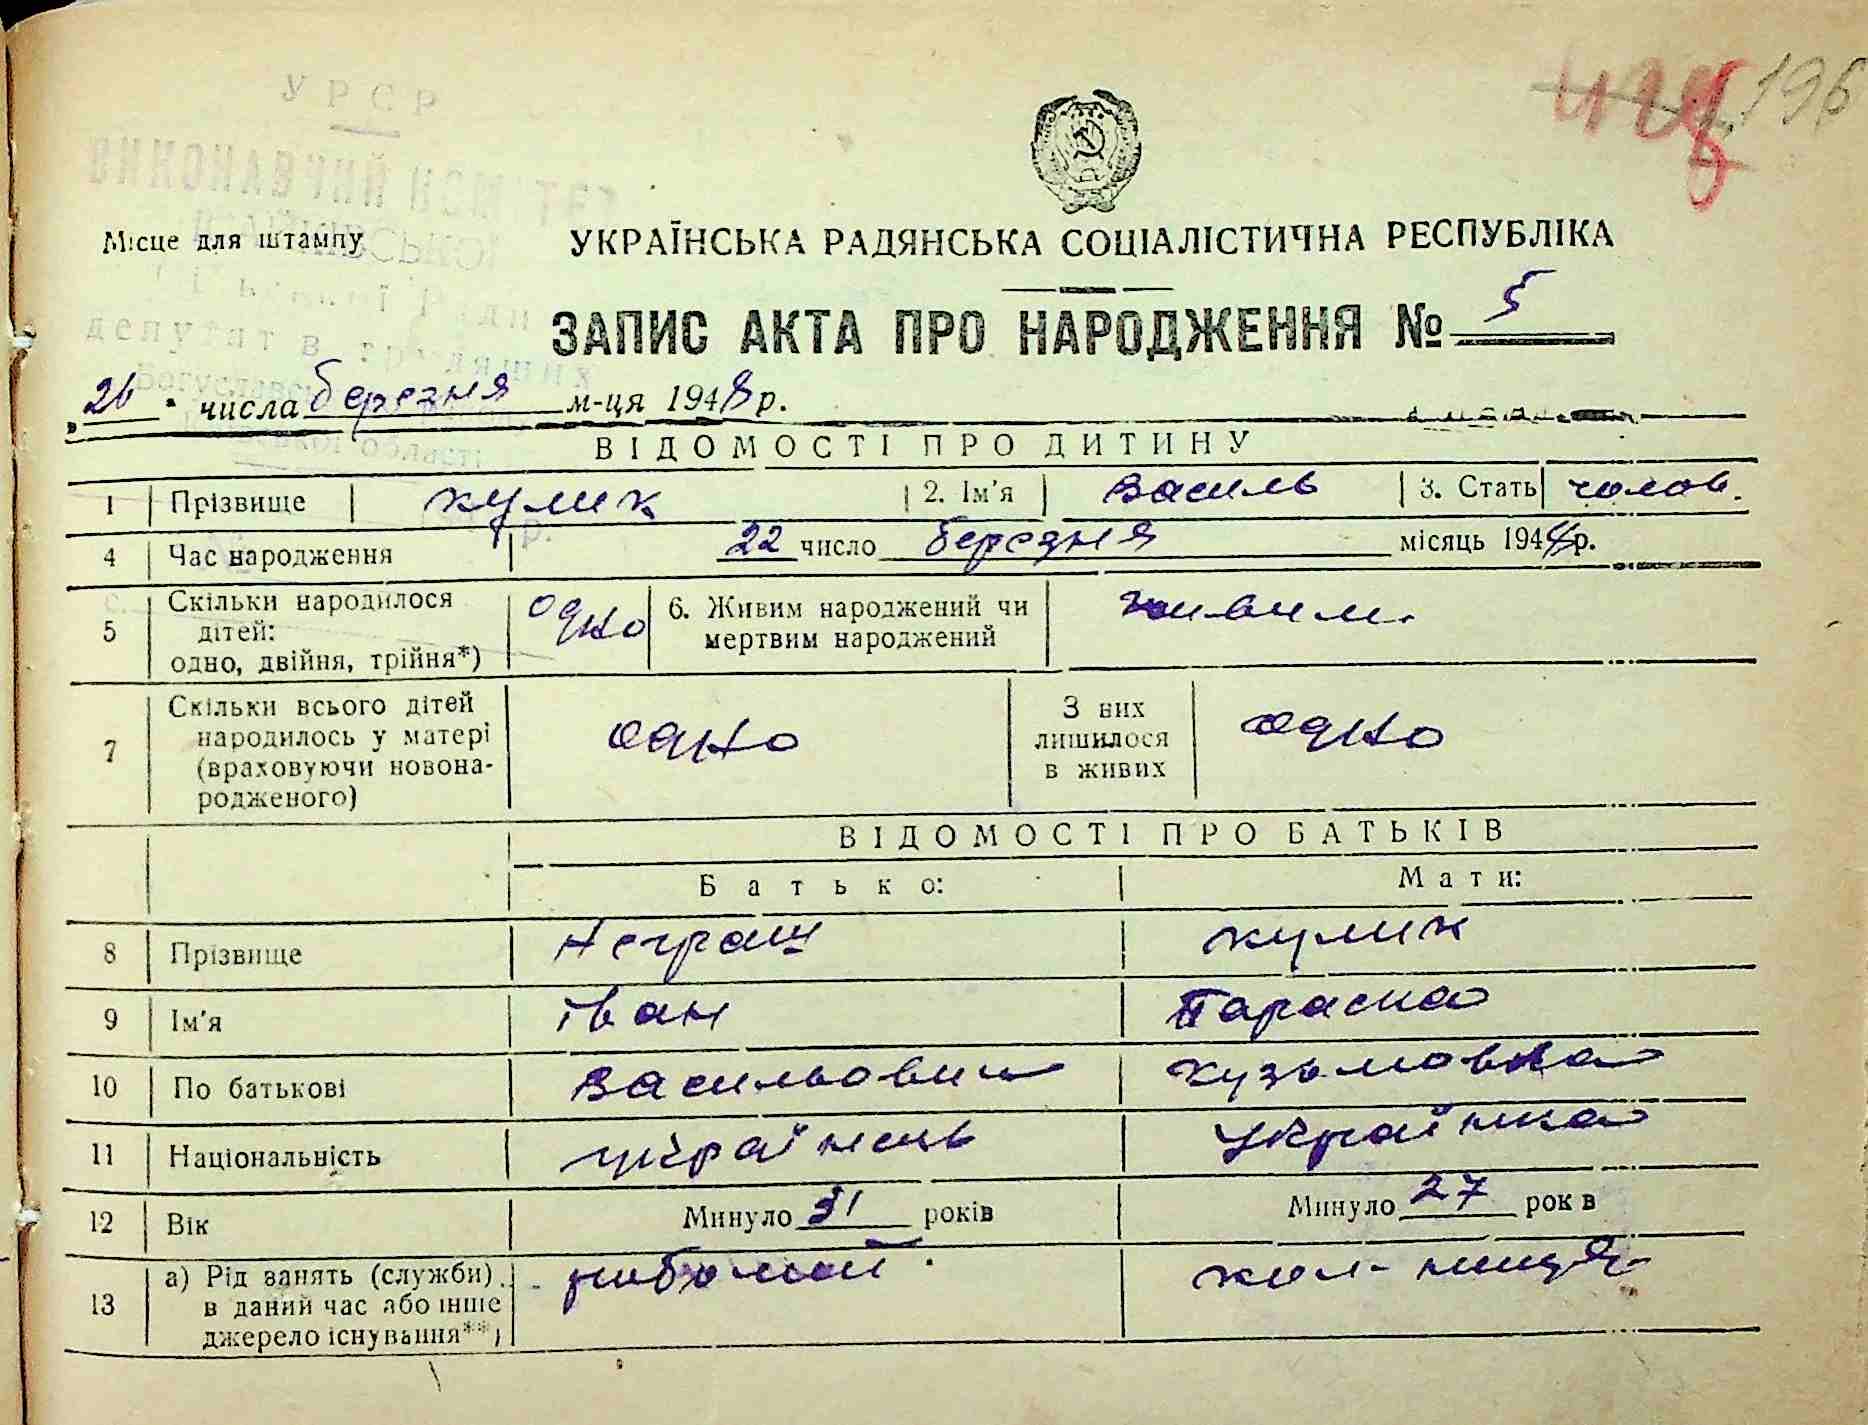 У Р С Р
196
ВИКОНАВЧИЙ КОМІТЕТ
Місце для штампу
УКРАЇНСЬКА РАДЯНСЬКА СОЦІАЛІСТИЧНА РЕСПУБЛІКА
ЗАПИС АКТА ПРО НАРОДЖЕННЯ № 5
„26" числа березня м-ця 1948 р.
ВІДОМОСТІ ПРО ДИТИНУ
1 Прізвище Кулик 2. Ім'я Василь 3. Стать чолов.
4 Час народження 22 число березня місяць 1948 р.
5 Скільки народилося дітей: одно, двійня, трійня*) одно 6. Живим народжений чи мертвим народжений живим.
7 Скільки всього дітей народилось у матері (враховуючи новонародженого) одно З них лишилося в живих одно
ВІДОМОСТІ ПРО БАТЬКІВ
Батько: Мати:
8 Прізвище Кулик
9 Ім'я Іван Параска
10 По батькові Васильович Кузьмовна
11 Національність українець Українка
12 Вік Минуло 31 років Минуло 27 років
13 а) Рід занять (служби) в даний час або інше джерело існування**)